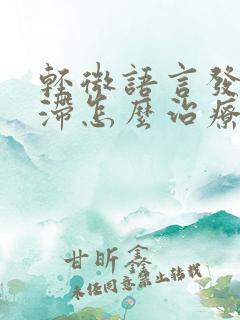 輕微語言發
滯怎麼治療
甘昕鑫
未任同意禁止轉載